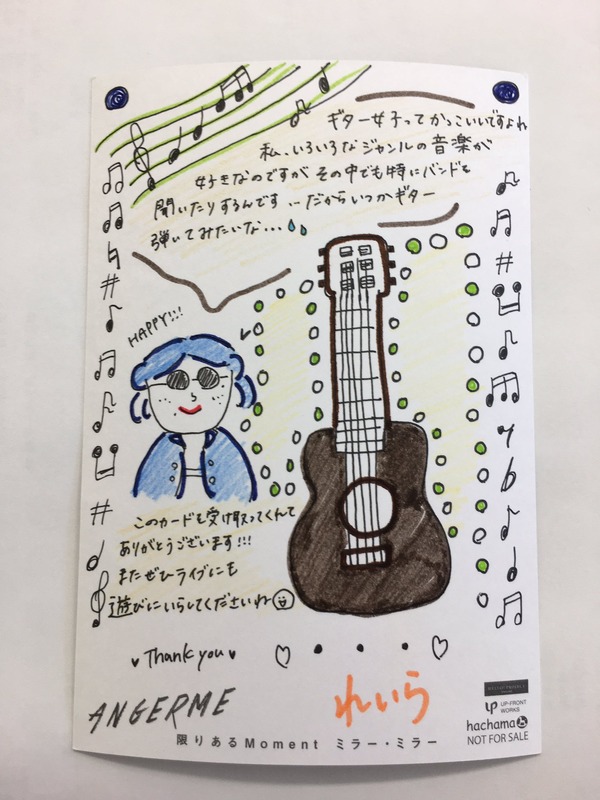 ギター女子ってかっこいいですよね
私、いろいろなジャンルの音楽が
好きなのですが その中でも特にバンドを
聞いたりするんです…だからいつかギター
弾いてみたいな...
HAPPY!!!
このカードを受け取ってくれて
ありがとうございます!!!
またぜひライブにも
遊びにいらしてくださいね
Thank you
ANGERME
れいら
UP-FRONT
WORKS
hachama
NOT FOR SALE
限りあるMoment ミラー・ミラー